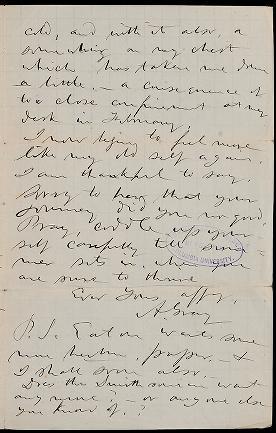 cold, and with it also, a
something on my chest
which has taken me down
a little, - a consequence of
too close confinement at my
desk in February.
I now trying to feel more
like my old self again,
I am thankful to say.
Sorry to hear that your
journey did you no good.
Pray, coddle up your
self carefully till sum-
mer sets in, when you
are sure to thrive.
Ever Yours affly,
A Gray
P.S. Eaton wants some
more herbm. paper, - &
I shall soon also. -
Does the Smithsonian want
any more? - or anyone else
you know of?
UNIVERSITY